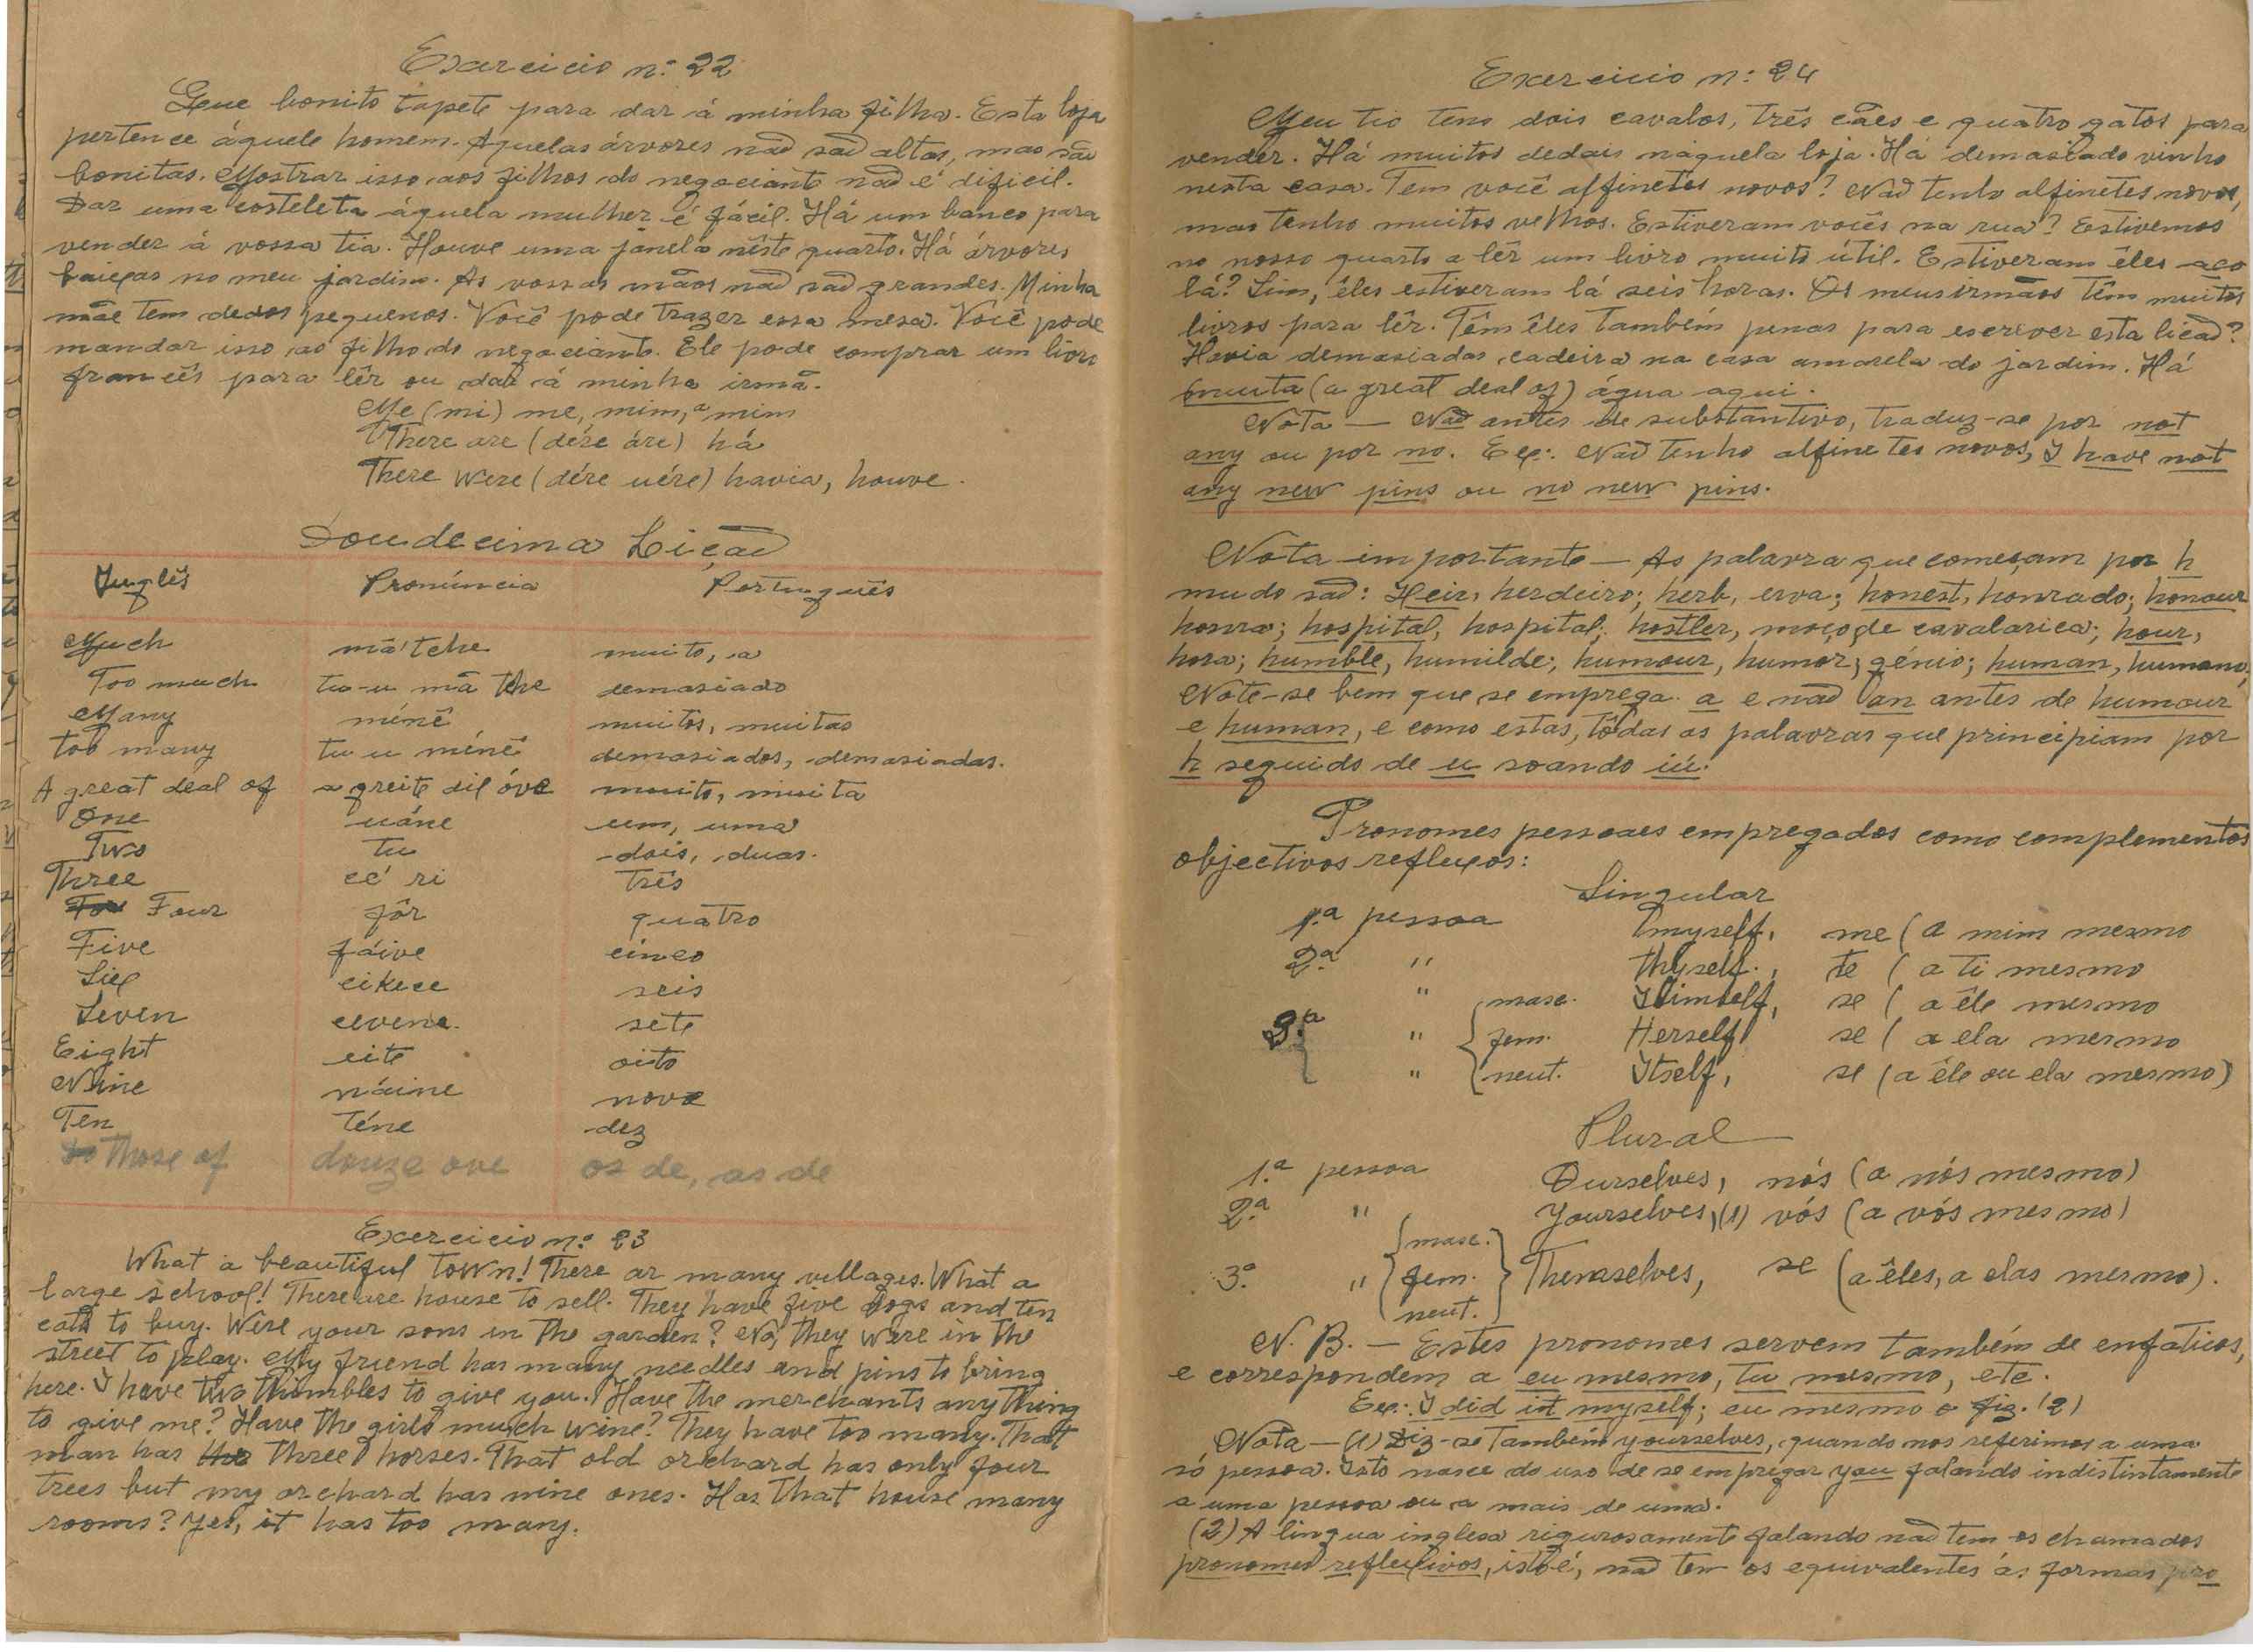 Exercicio n.º 22
Que bonito tapete para dar á minha filha. Esta loja
pertence áquele homem. Aquelas árvores não são altas, mas são
bonitas. Mostrar isso aos filhos do negociante não é dificil.
Dar uma costeleta áquela mulher é fácil. Há um banco para
vender á vossa tia. Houve uma janela nêste quarto. Há árvores
baixas no meu jardim. As vossas mãos não são grandes. Minha
mãe tem dedos pequenos. Você pode trazer essa mesa. Você pode
mandar isso ao filho do negociante. Ele pode comprar um livro
francês para lêr ou dar á minha irmã.
Me (mi) me, mim, a mim
There are (dére áre) há
There were (dére uére) havia, houve.
Doudecima Lição
Inglês Pronúncia Português
Much má'tche muito, a
Too much tu-u má tche demasiado
Many ménê muitos, muitas
too many tu u ménê demasiados, demasiadas.
A great deal of a greite dil óve muito, muita
One uáne um, uma
Two tu dois, duas.
Three cé' ri três
Four fôr quatro
Five fáive cinco
Six cikce seis
Seven cevene. sete
Eight eite oito
Nine náine nove
Ten téne dez
those of douze ove os de, as de
Exercicio n.º 23
What a beautiful town! There ar many villages. What a
large school! There are house to sell. They have five dogs and ten
cats to buy. Were your sons in the garden? No, they were in the
street to play. My friend has many needles and pins to bring
here. I have two thimbles to give you. Have the merchants anything
to give me? Have the girls much wine? They have too many. That
man has three horses. That old orchard has only four
trees but my orchard has nine ones. Has that house many
rooms? Yes, it has too many.
Exercicio n.º 24
Meu tio tem dois cavalos, três cães e quatro gatos para
vender. Há muitos dedais náquela loja. Há demasiado vinho
nesta casa. Tem você alfinetes novos? Não tenho alfinetes novos,
mas tenho muitos velhos. Estiveram vocês na rua? Estivemos
no nosso quarto a lêr um livro muito útil. Estiveram êles aco
lá? Sim, êles estiveram lá seis horas. Os meus irmãos têm muitos
livros para lêr. Têm êles também penas para escrever esta licão?
Havia demasiadas cadeira na casa amarela do jardim. Há
muita (a great deal of) água aqui.
Nota — Não antes de substantivo, traduz-se por not
any ou por no. Ex.: Não tenho alfinetes novos, I have not
any new pins ou no new pins.
Nota importante — As palavra que começam por h
mudo são: Heir, herdeiro; herb, erva; honest, honrado; honour
honra; hospital, hospital; hostler, moço de cavalarica; hour,
hora; humble, humilde; humour, humor, génio; human, humano;
Note-se bem que se emprega a e não an antes de humour
e human, e como estas, tôdas as palavras que principiam por
h seguido de u soando iú.
Pronomes pessoaes empregados como complementos
objectivos reflexos:
Singular
1.ª pessoa Imyself, me (a mim mesmo
2.ª " thyself., te (a ti mesmo
" masc. Himself, se (a êle mesmo
3.ª " fem. Herself se (a ela mesmo
" neut. Itself, se (a êle ou ela mesmo)
Plural
1.ª pessoa Ourselves, nós (a nós mesmo)
2.ª " Yourselves, (1) vós (a vós mesmo)
masc.
3.ª " fem. Themselves, se (a êles, a elas mesmo).
neut.
N. B. — Estes pronomes servem também de enfáticos,
e correspondem a eu mesmo, tu mesmo, etc.
Ex.: I did it myself; eu mesmo o fiz. (2)
Nota — (1) Diz-se também yourselves, quando nos referimos a uma
só pessoa. Isto nasce do uso de se empregar you falando indistintamente
a uma pessoa ou a mais de uma.
(2) A lingua inglesa rigurosamente falando não tem os chamados
pronomes reflexivos, isto é, não tem os equivalentes ás formas pro